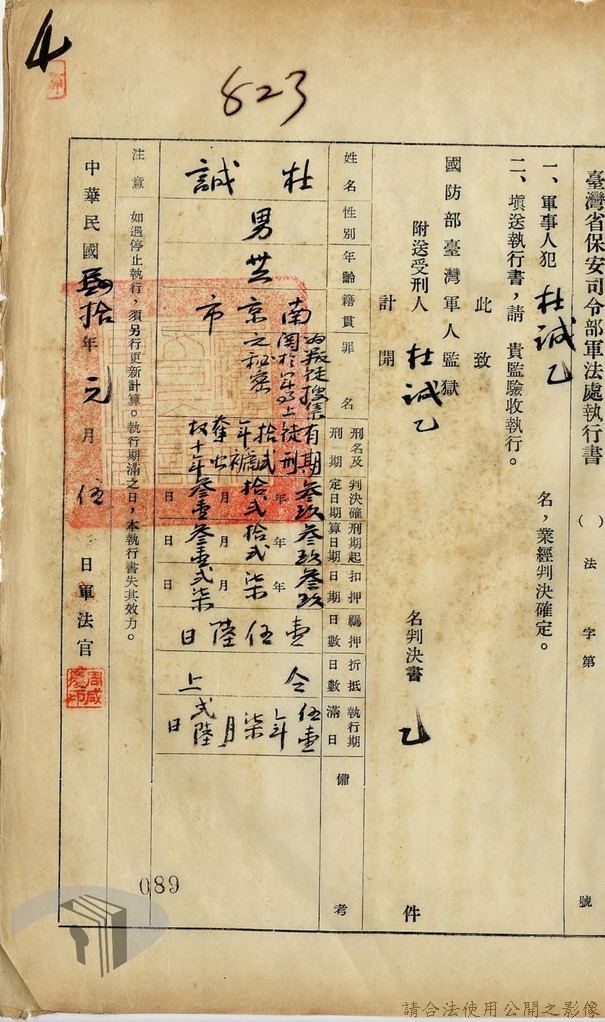 4
823
臺灣省保安司令部軍法處執行書
（ ）法字第 號
一、軍事人犯 杜誠乙 名，業經判決確定。
二、填送執行書，請 貴監驗收執行。
此致
國防部臺灣軍人監獄
附送受刑人 杜誠乙 名判決書 乙 件
計開
姓名
性別
年齡
籍貫
罪名
刑名及刑期
判決確定日期
刑期起算日期
扣押日期
羈押日數
折抵日數
執行期滿日
備考
杜誠
男
廿
南京市
為叛徒搜集關於軍事上之秘密
有期徒刑拾貳年褫奪公權十年
參玖年拾貳月參壹日
參玖年拾貳月參壹日
參玖年柒月貳柒日
壹伍陸日
仝上
伍壹年柒月貳陸日
注意 如遇停止執行，須另行更新計算。執行期滿之日，本執行書失其效力。
中華民國 肆拾年 元月 伍日 軍法官
089
請合法使用公開之影像